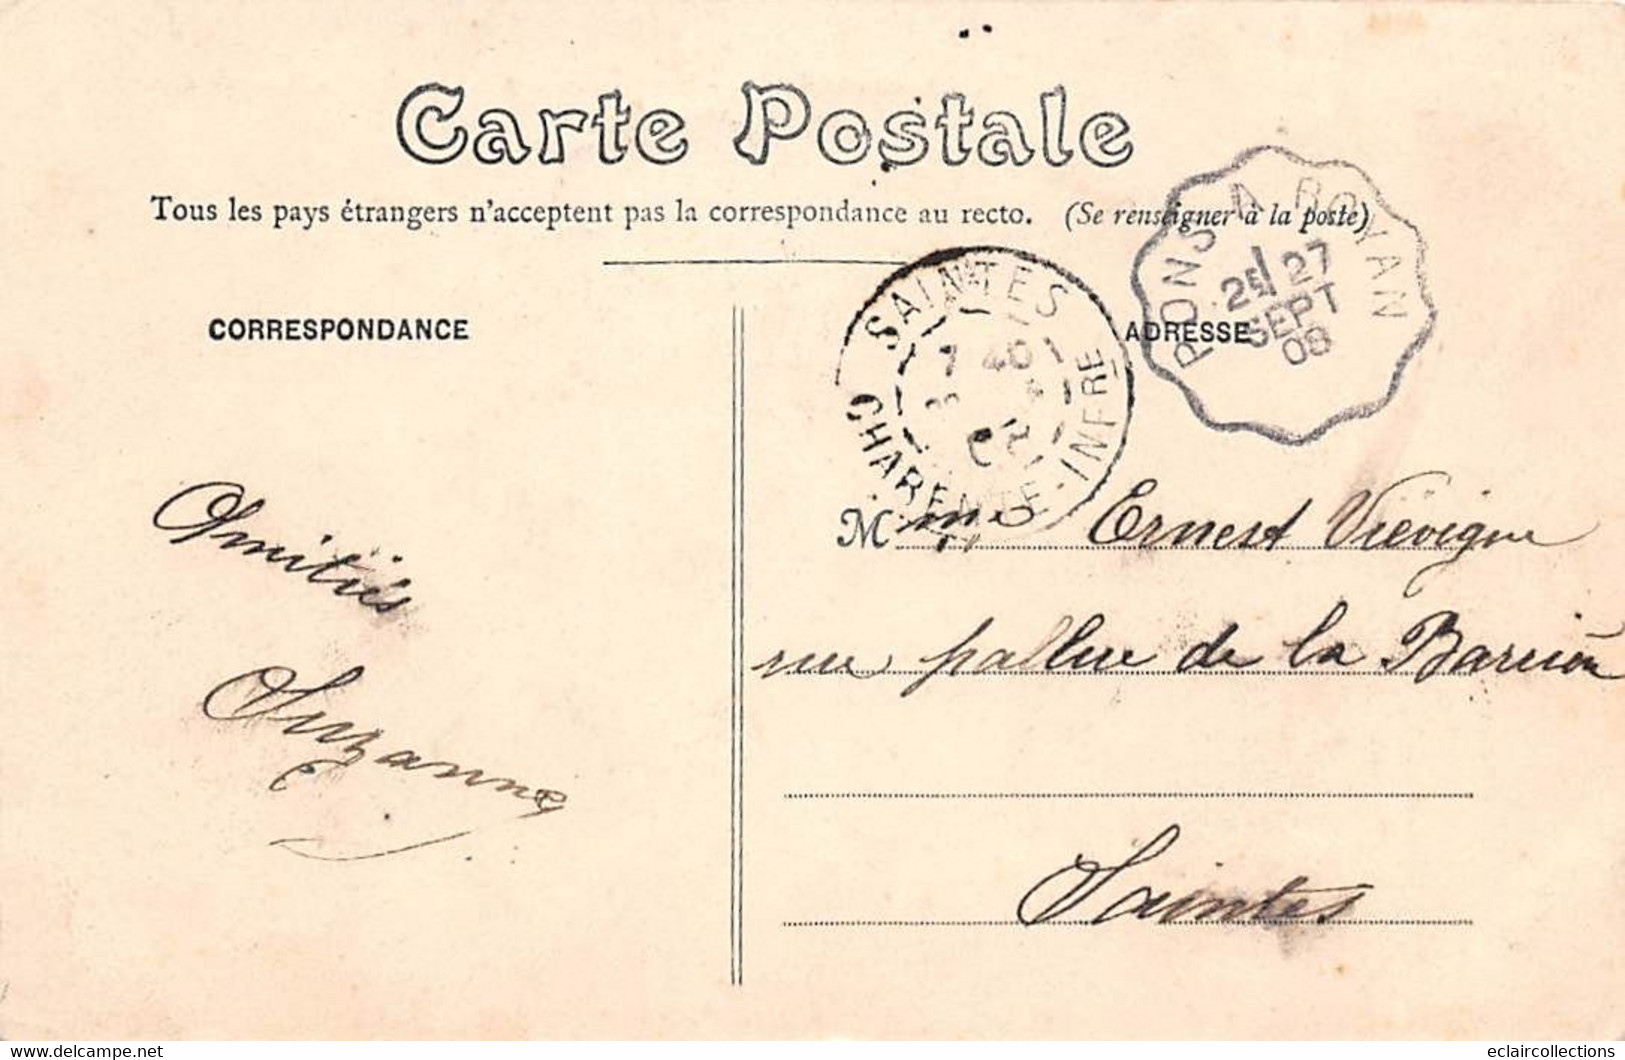 Carte Postale
Tous les pays étrangers n'acceptent pas la correspondance au recto. (Se renseigner à la poste)
PONS A ROYAN
25 27
SEPT
08
SAINTES
7 40
CHARENTE-INFRE
CORRESPONDANCE
ADRESSE
Amitiés
Suzanne
M me Ernest Vievigne
rue pallue de la Barrière
Saintes
Delcampe.net
eclaircollections